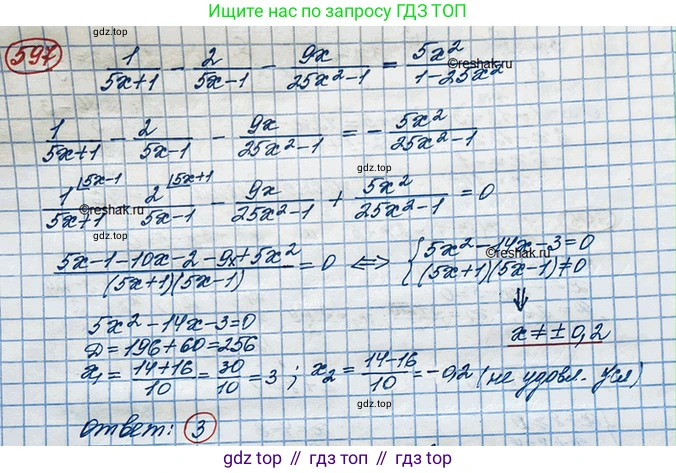 Ищите нас по запросу ГДЗ ТОП
597
1/(5x+1) - 2/(5x-1) - 9x/(25x²-1) = 5x²/(1-25x²)
©reshak.ru
gdz.top
1/(5x+1) - 2/(5x-1) - 9x/(25x²-1) = - 5x²/(25x²-1)
gdz.top
1⌊5x-1/(5x+1) - 2⌊5x+1/(5x-1) - 9x/(25x²-1) + 5x²/(25x²-1) = 0
©reshak.ru
gdz.top
(5x-1-10x-2-9x+5x²)/((5x+1)(5x-1)) = 0 ⟺ { 5x²-14x-3=0
(5x+1)(5x-1)≠0
©reshak.ru
gdz.top
⇓
5x²-14x-3=0
x≠±0,2
D=196+60=256
x₁=(14+16)/10=30/10=3; x₂=(14-16)/10=-0,2 (не удовл. усл)
gdz.top
gdz.top
Ответ: 3
gdz.top // гдз топ // gdz.top // гдз топ